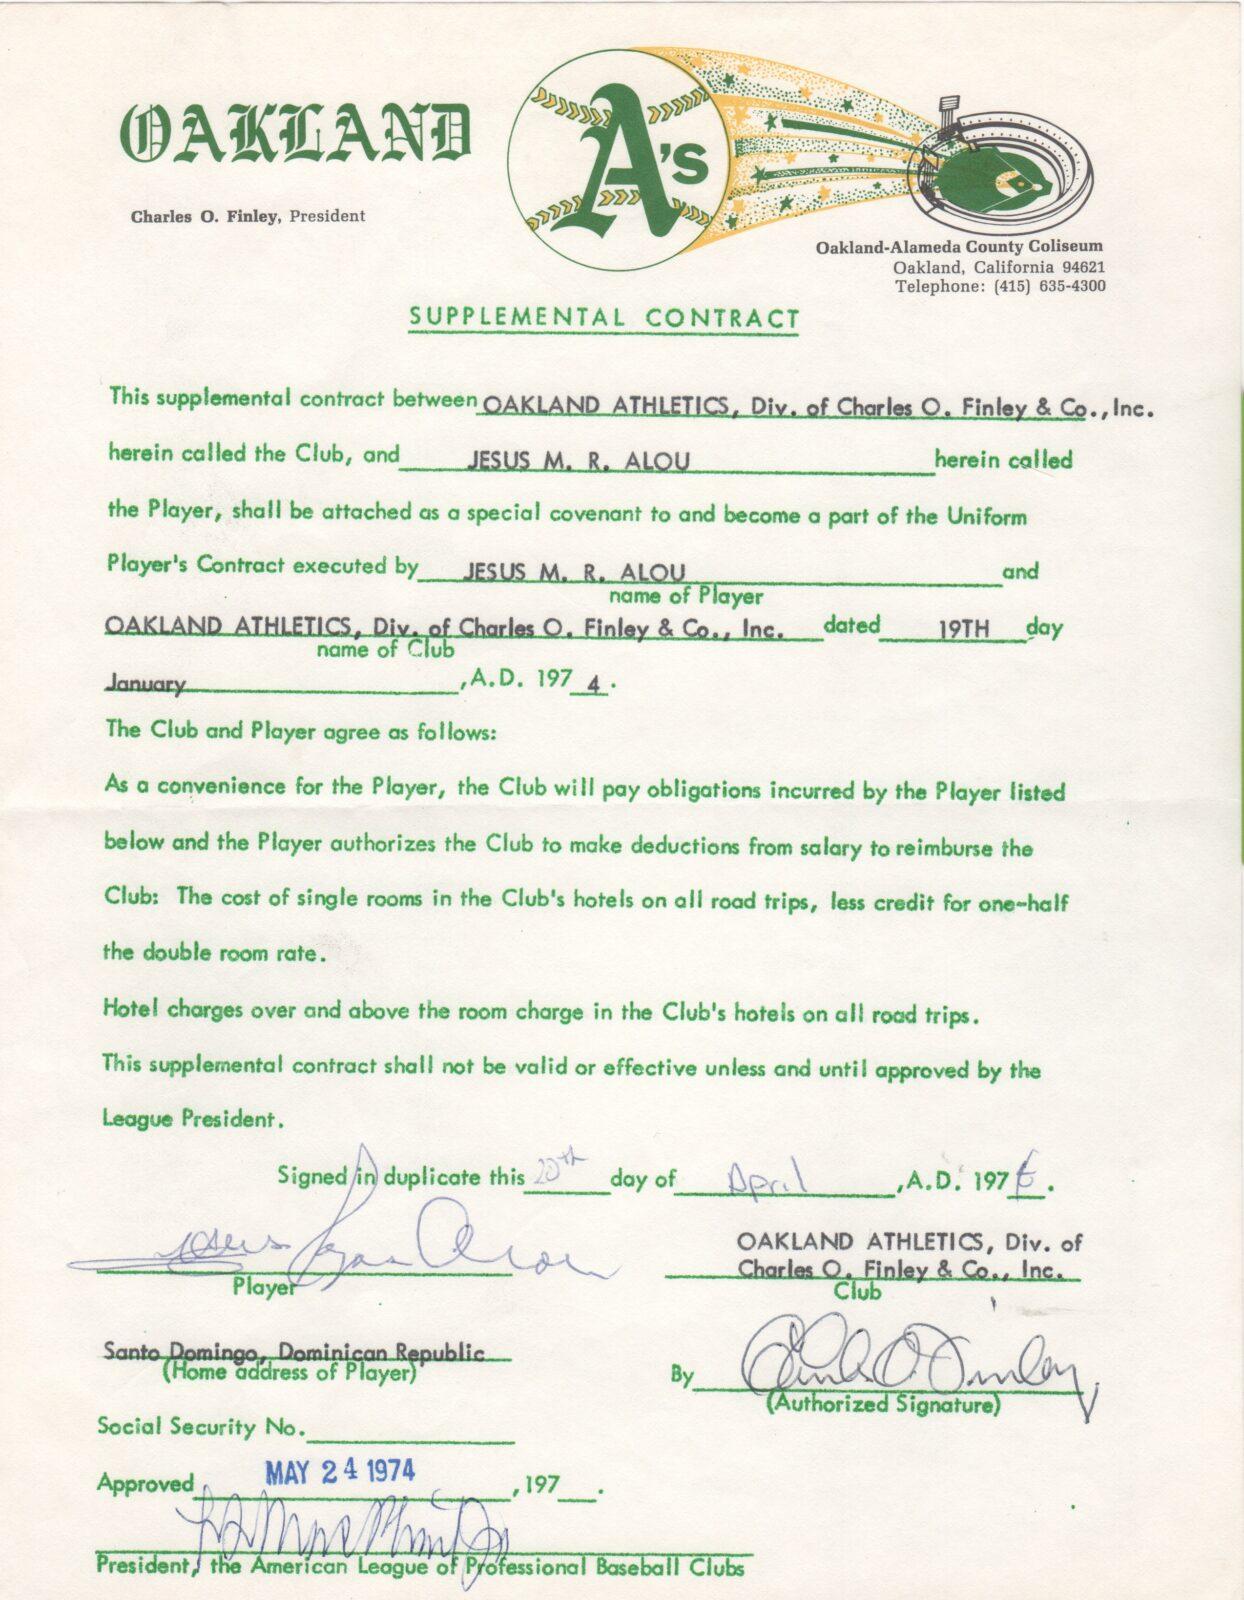 OAKLAND A's
Charles O. Finley, President
Oakland-Alameda County Coliseum
Oakland, California 94621
Telephone: (415) 635-4300
SUPPLEMENTAL CONTRACT
This supplemental contract between OAKLAND ATHLETICS, Div. of Charles O. Finley & Co., Inc.
herein called the Club, and JESUS M. R. ALOU herein called
the Player, shall be attached as a special covenant to and become a part of the Uniform
Player's Contract executed by JESUS M. R. ALOU and
name of Player
OAKLAND ATHLETICS, Div. of Charles O. Finley & Co., Inc. dated 19TH day
name of Club
January, A.D. 1974.
The Club and Player agree as follows:
As a convenience for the Player, the Club will pay obligations incurred by the Player listed
below and the Player authorizes the Club to make deductions from salary to reimburse the
Club: The cost of single rooms in the Club's hotels on all road trips, less credit for one-half
the double room rate.
Hotel charges over and above the room charge in the Club's hotels on all road trips.
This supplemental contract shall not be valid or effective unless and until approved by the
League President.
Signed in duplicate this 20th day of April, A.D. 197 .
Jesus Rojas Alou
Player
OAKLAND ATHLETICS, Div. of
Charles O. Finley & Co., Inc.
Club
Santo Domingo, Dominican Republic
(Home address of Player)
By Charles O. Finley
(Authorized Signature)
Social Security No.
Approved MAY 24 1974, 197 .
President, the American League of Professional Baseball Clubs